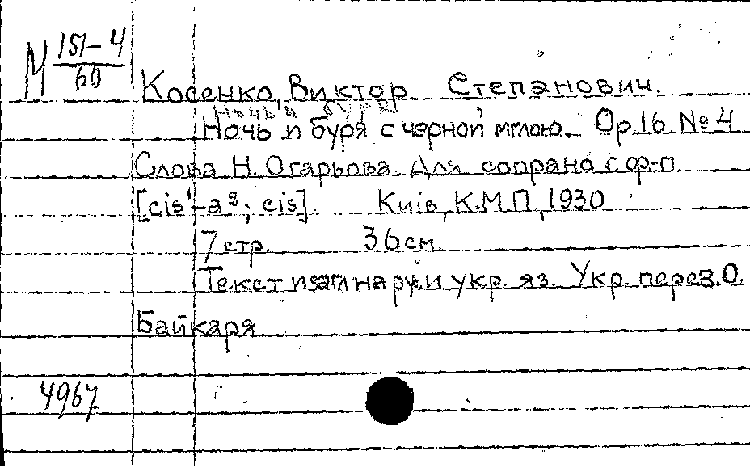 М 151-4
60
Косенко, Виктор Степанович.
Ночь и буря
Ночь и буря с черной мглою. Ор.16 № 4
Слова Н. Огарьова. Для сопрано с ф-п.
[cis¹-a²; cis]. Київ, К.М.П., 1930
7 стр. 36 см.
Текст и загл на рус. и укр. яз. Укр. перев. О.
Байкаря
4967